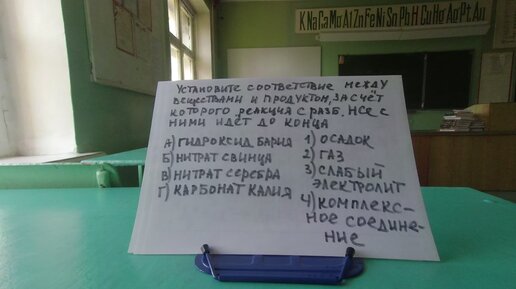 K Na Ca Mg Al Zn Fe Ni Sn Pb H Cu Hg Ag Pt Au
УСТАНОВИТЕ СООТВЕТСТВИЕ МЕЖДУ
ВЕЩЕСТВАМИ И ПРОДУКТОМ, ЗА СЧЁТ
КОТОРОГО РЕАКЦИЯ С РАЗБ. HCl С
НИМИ ИДЁТ ДО КОНЦА
А) ГИДРОКСИД БАРИЯ
Б) НИТРАТ СВИНЦА
В) НИТРАТ СЕРЕБРА
Г) КАРБОНАТ КАЛИЯ
1) ОСАДОК
2) ГАЗ
3) СЛАБЫЙ
ЭЛЕКТРОЛИТ
4) КОМПЛЕКС-
НОЕ СОЕДИНЕ-
НИЕ